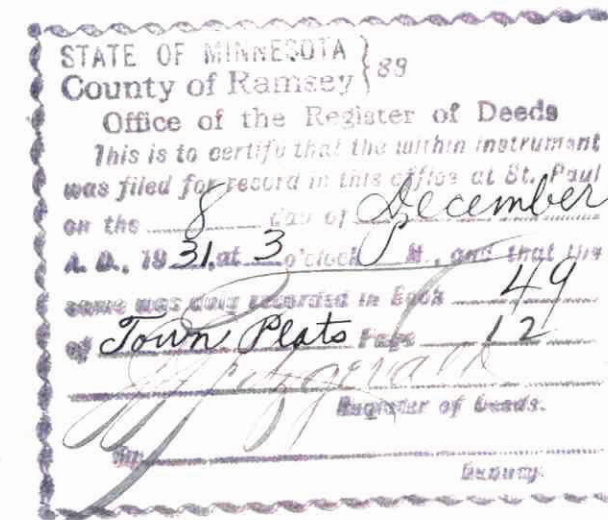 STATE OF MINNESOTA } ss
County of Ramsey
Office of the Register of Deeds
This is to certify that the within instrument
was filed for record in this office at St. Paul
on the 8 day of December
A. D., 1931, at 3 o'clock P M., and that the
same was duly recorded in Book 49
of Town Plats Page 12
Fitzgerald
Register of Deeds.
By
Deputy.